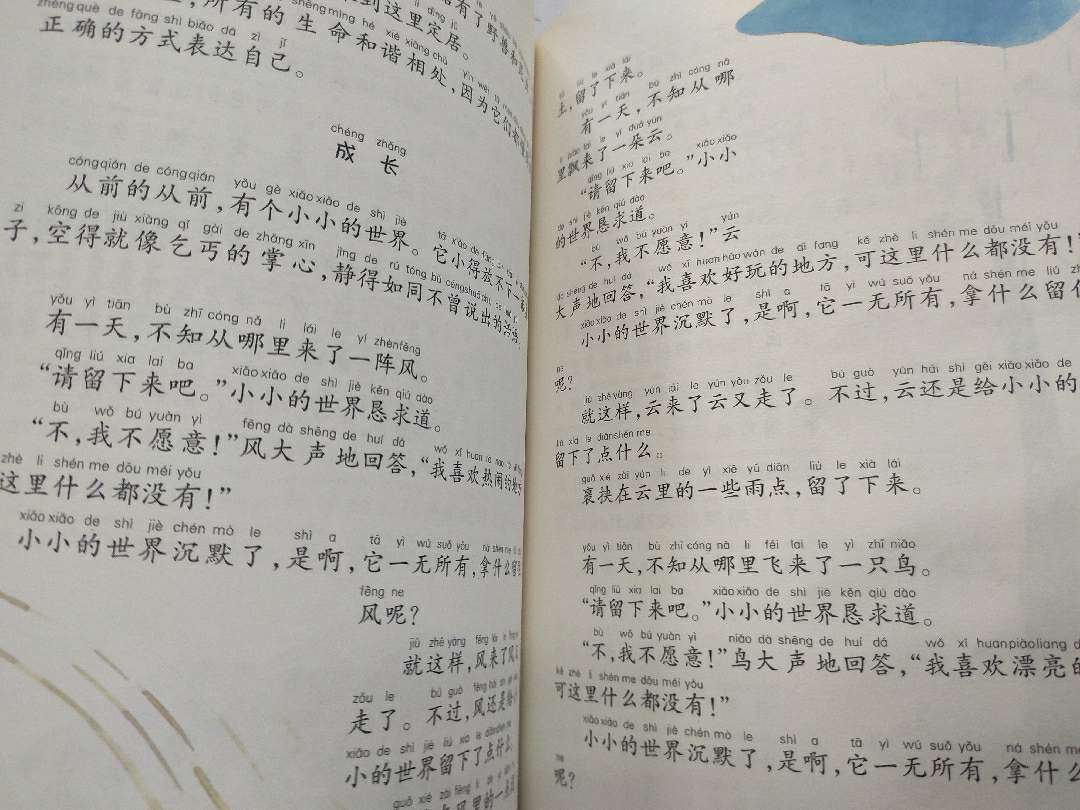 zhèng què de fāng shì biǎo dá zì jǐ
正确的方式表达自己。
所有的生命和谐相处,因为它们
到这里定居。
chéng zhǎng
成 长
cóngqián de cóngqián yǒu gè xiǎoxiǎo de shì jiè
从前的从前,有个小小的世界。它小得放不下一
zi kōng de jiù xiàng qǐ gài de zhǎng xīn jìng de rú tóng bù céngshuōchū de
子,空得就像乞丐的掌心,静得如同不曾说出的
yǒu yì tiān bù zhī cóng nǎ lǐ lái le yí zhènfēng
有一天,不知从哪里来了一阵风。
qǐng liú xia lai ba xiǎoxiǎo de shì jiè kěn qiú dào
“请留下来吧。”小小的世界恳求道。
bù wǒ bú yuàn yì fēng dà shēng de huí dá
“不,我不愿意!”风大声地回答,“我喜欢热闹的地方
zhè li shén me dōu méi yǒu
这里什么都没有!”
xiǎo xiǎo de shì jiè chén mò le shì a tā yì wú suǒ yǒu
小小的世界沉默了,是啊,它一无所有,拿什么留
fēng ne
风呢?
jiù zhè yàng fēng lái le
就这样,风来了风
zǒu le bú guò fēng hái shi
走了。不过,风还是给小
xiǎo de shì jiè liú xia le diǎnshén me
小的世界留下了点什么。
guǒ xié zài fēng li de yì
风里的一
tǔ liú le xià lái
土,留了下来。
yǒu yì tiān bù zhī cóng nǎ
有一天,不知从哪
li piāo lái le yì duǒ yún
里飘来了一朵云。
qǐng liú xia lai ba xiǎo xiǎo
“请留下来吧。”小小
de shì jiè kěn qiú dào
的世界恳求道。
bù wǒ bú yuàn yì yún
“不,我不愿意!”云
dà shēng de huí dá wǒ xǐ huan hǎo wán de dì fang kě zhè li shén me dōu méi yǒu
大声地回答,“我喜欢好玩的地方,可这里什么都没有!
xiǎo xiǎo de shì jiè chén mò le shì a tā yì wú suǒ yǒu ná shén me liú
小小的世界沉默了,是啊,它一无所有,拿什么留住
ne
呢?
jiù zhè yàng yún lái le yún yòu zǒu le bú guò yún hái shi gěi xiǎo xiǎo de
就这样,云来了云又走了。不过,云还是给小小的
liú xià le diǎnshén me
留下了点什么。
guǒ xié zài yún li de yì xiē yǔ diǎn liú le xià lái
裹挟在云里的一些雨点,留了下来。
yǒu yì tiān bù zhī cóng nǎ li fēi lai le yì zhī niǎo
有一天,不知从哪里飞来了一只鸟。
qǐng liú xia lai ba xiǎoxiǎo de shì jiè kěn qiú dào
“请留下来吧。”小小的世界恳求道。
bù wǒ bú yuàn yì niǎo dà shēng de huí dá wǒ xǐ huanpiàoliang de
“不,我不愿意!”鸟大声地回答,“我喜欢漂亮的
kě zhè li shén me dōu méi yǒu
可这里什么都没有!”
xiǎoxiǎo de shì jiè chén mò le shì a tā yì wú suǒ yǒu ná shén me
小小的世界沉默了,是啊,它一无所有,拿什么
ne
呢?